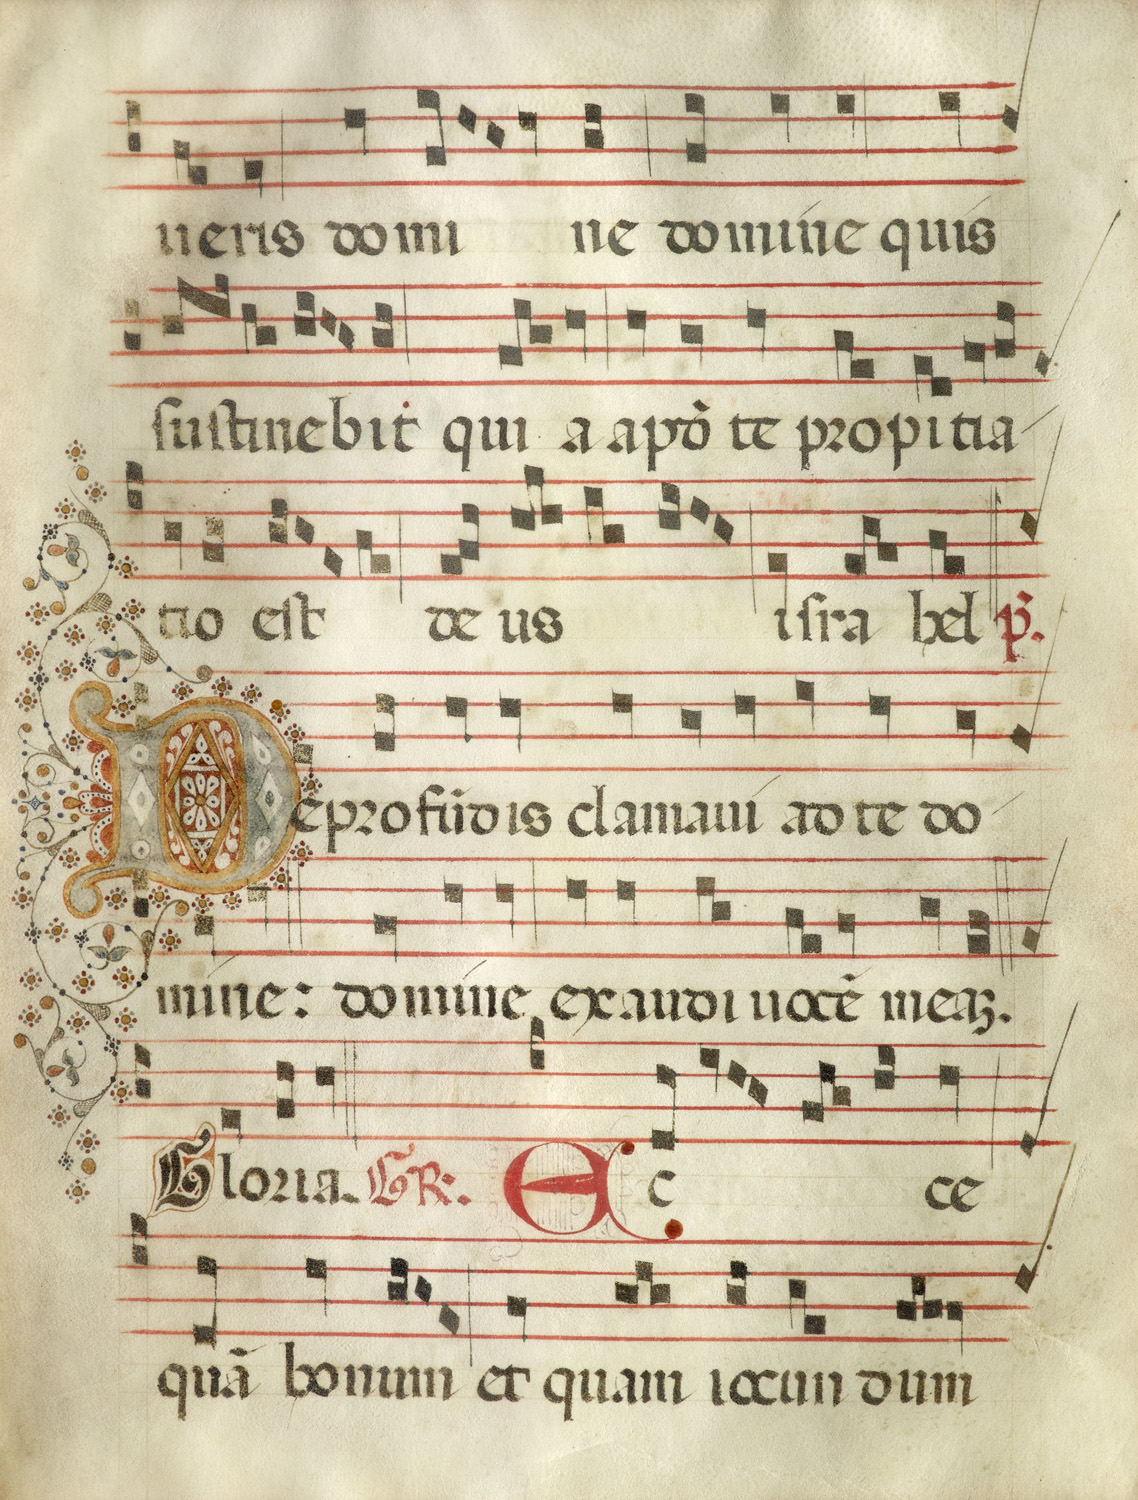 ueris domi ne domine quis
sustinebit qui a apō te propitia
tio est de us isra hel p̄.
De profūdis clamaui ad te do
mine: domine exaudi uocē meaȝ.
Gloria. GR. Ec ce
quā bonum et quam iocun dum